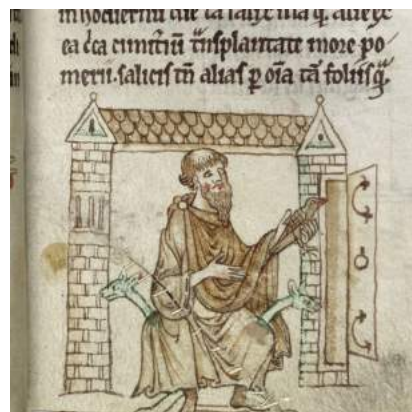 in hodiernũ diẽ tã salix illa q̃ alie ex
ea c̃ca cimit̃iũ t̃nsplantate more po
merii. salicis tñ alias ꝑ oĩa tã foliis q̃